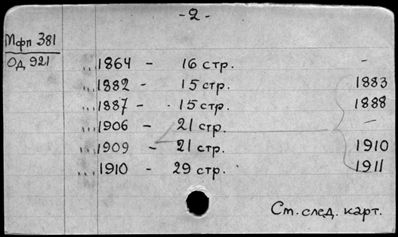 -2-
Мфп 381
Од 921
„, 1864 - 16 стр.
„, 1882 - 15 стр. 1883
„, 1887 - 15 стр. 1888
„, 1906 - 21 стр. -
„, 1909 - 21 стр. 1910
„, 1910 - 29 стр. 1911
См. след. карт.